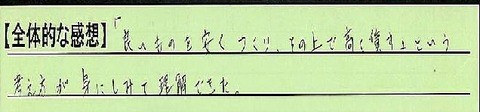 【全体的な感想】「良いものを安くつくり、その上で高く償す」という
考え方が身にしみて理解できた。